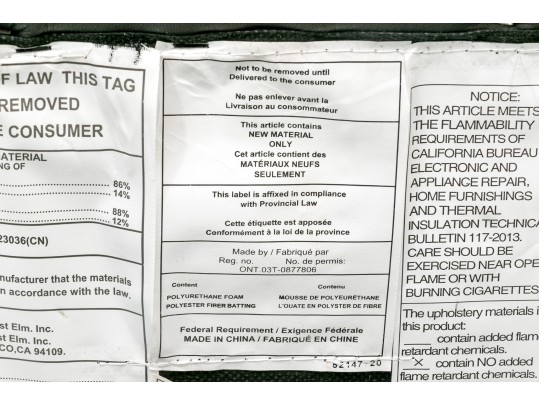 OF LAW THIS TAG
REMOVED
CONSUMER
MATERIAL
NG OF
86%
14%
88%
12%
23036(CN)
nufacturer that the materials
n accordance with the law.
st Elm. Inc.
st Elm. Inc.
CO,CA 94109.
Not to be removed until
Delivered to the consumer
Ne pas enlever avant la
Livraison au consommateur
This article contains
NEW MATERIAL
ONLY
Cet article contient des
MATÉRIAUX NEUFS
SEULEMENT
This label is affixed in compliance
with Provincial Law
Cette étiquette est apposée
Conformément à la loi de la province
Made by / Fabriqué par
Reg. no. No. de permis:
ONT.03T-0877806
Content Contenu
POLYURETHANE FOAM MOUSSE DE POLYEURÉTHANE
POLYESTER FIBER BATTING L'OUATE EN POLYSTER DE FIBRE
Federal Requirement / Exigence Fédérale
MADE IN CHINA / FABRIQUÉ EN CHINE
62147-20
NOTICE:
THIS ARTICLE MEETS
THE FLAMMABILITY
REQUIREMENTS OF
CALIFORNIA BUREAU
ELECTRONIC AND
APPLIANCE REPAIR,
HOME FURNISHINGS
AND THERMAL
INSULATION TECHNICA
BULLETIN 117-2013.
CARE SHOULD BE
EXERCISED NEAR OPE
FLAME OR WITH
BURNING CIGARETTES
The upholstery materials i
this product:
contain added flame
retardant chemicals.
X contain NO added
flame retardant chemicals.